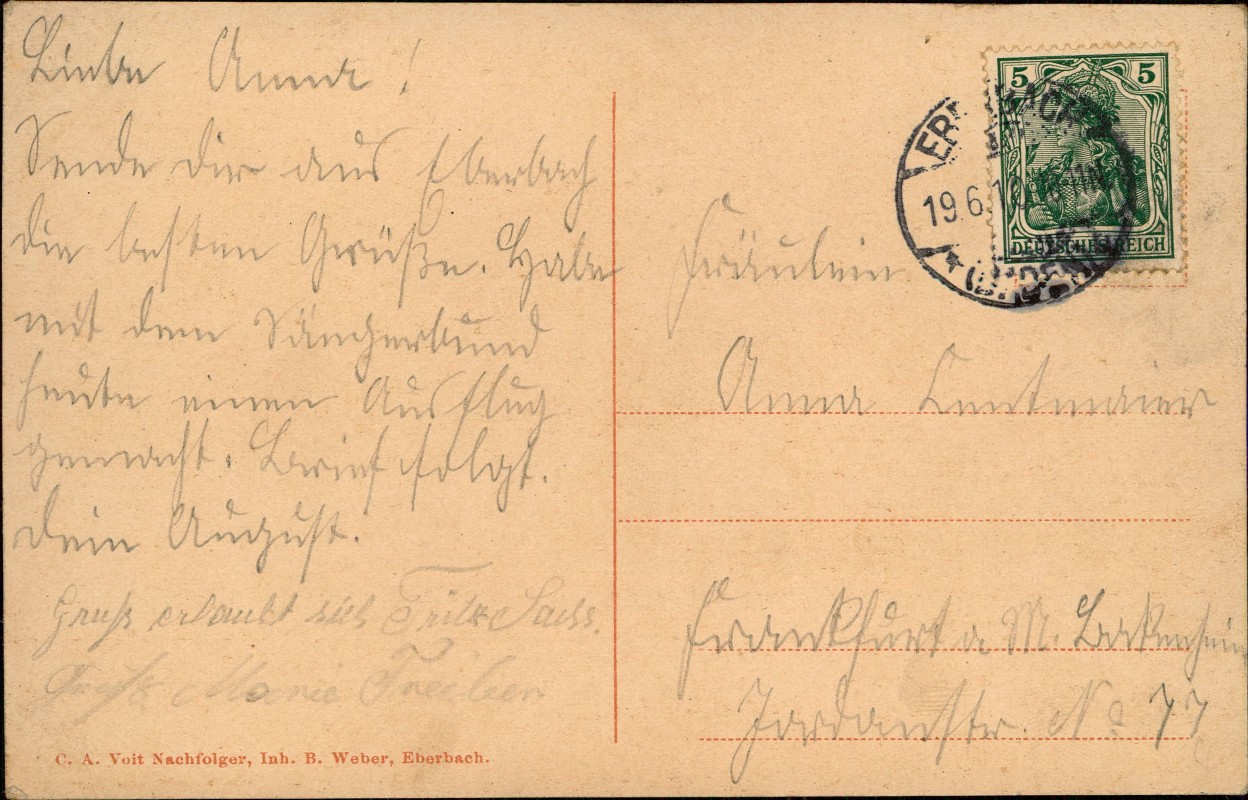 Liebe Anna!
Sende dir aus Eberbach
die besten Grüße. Habe
mit dem Sängerbund
heute einen Ausflug
gemacht. Brief folgt.
Dein August.
Gruß erlaubt sich Fritz Sachs.
Marie
C. A. Voit Nachfolger, Inh. B. Weber, Eberbach.
5 5
DEUTSCHES REICH
19.6.10
Fräulein
Anna Lentmaier
Frankfurt a M. Bockenheim
Jordanstr. No 77